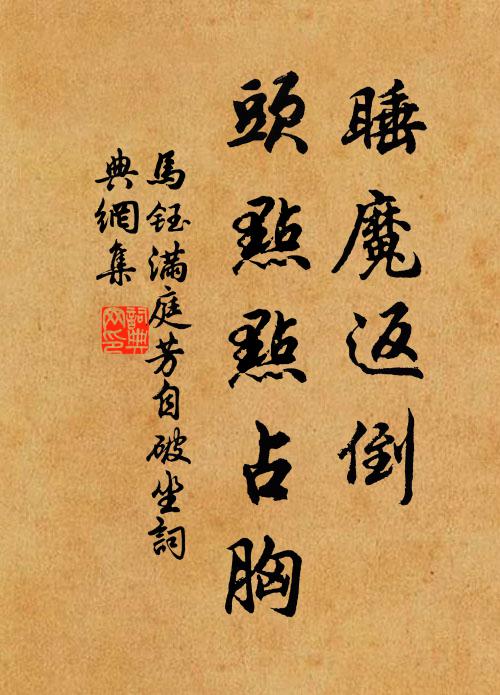 睡魔返倒
頭點點占胸
馬鈺滿庭芳自破坐詞
典網集
詞典網印